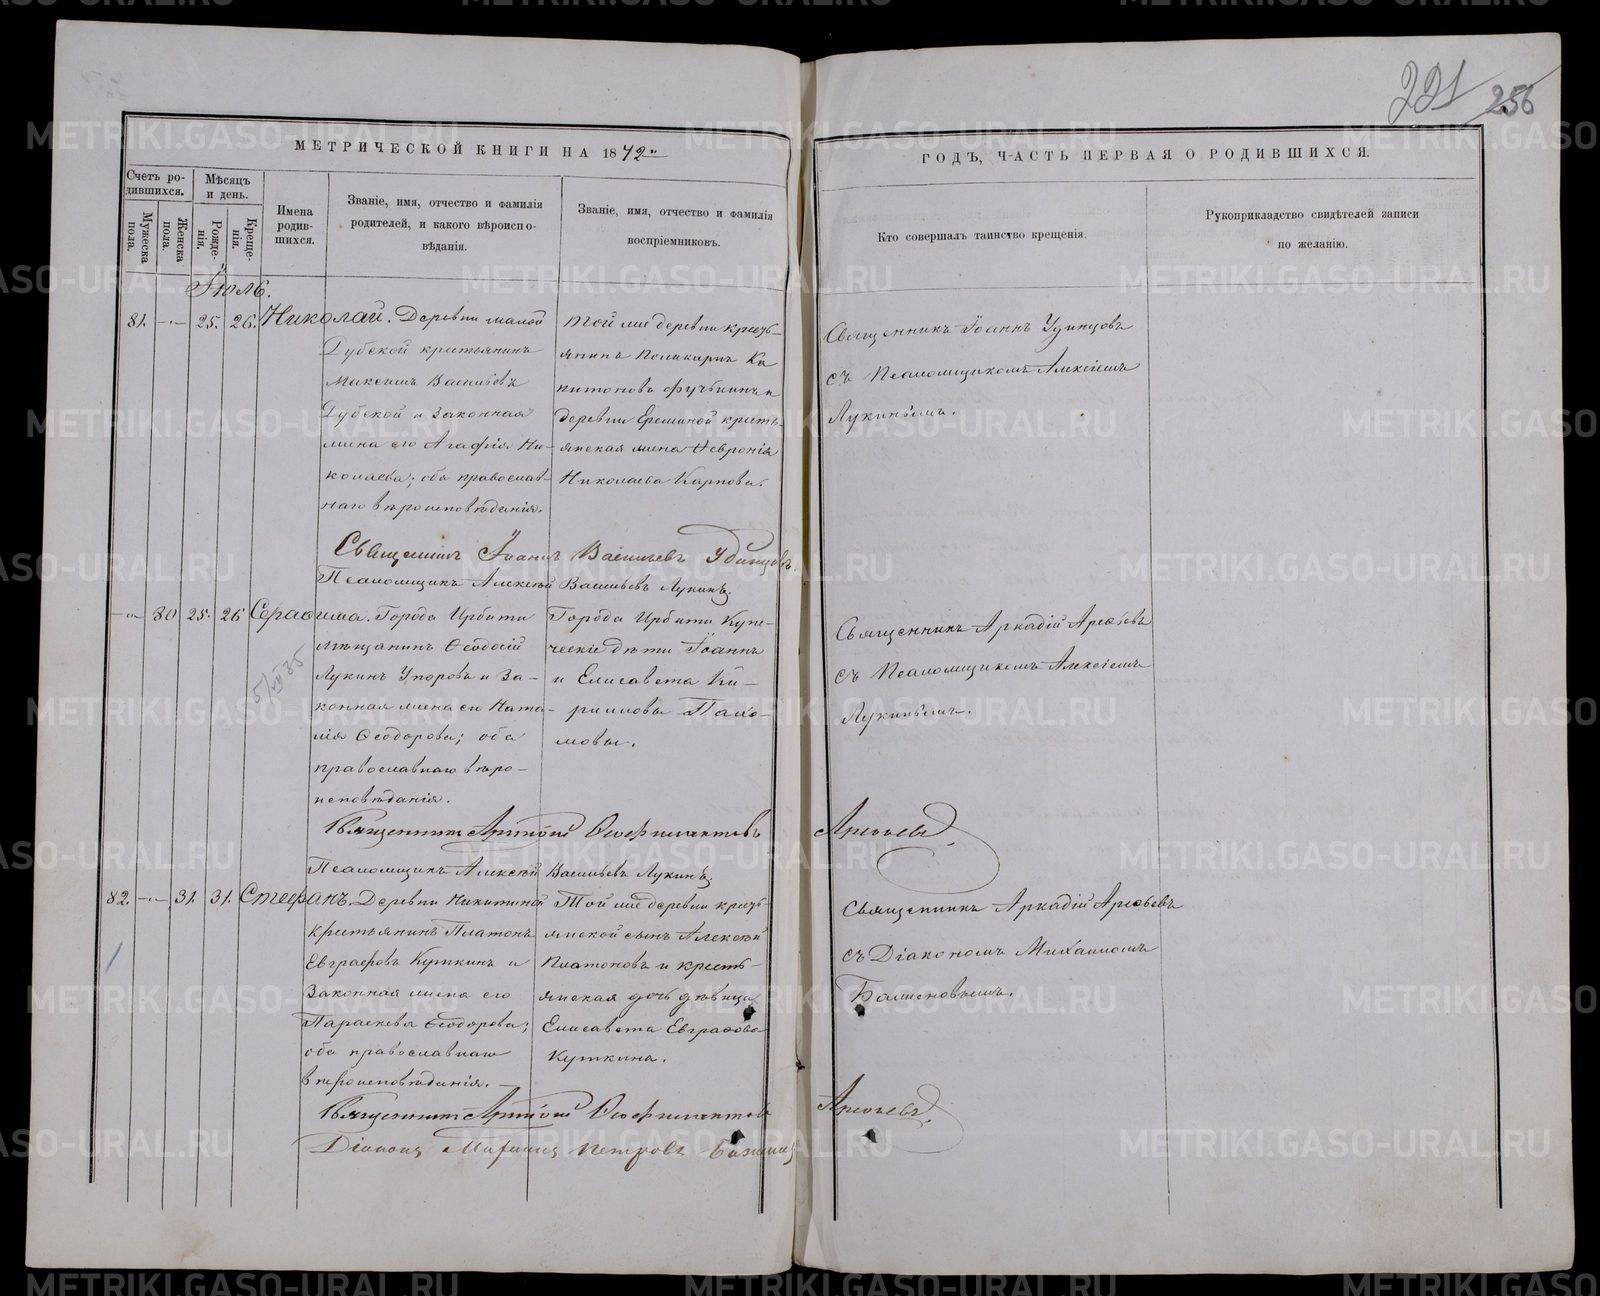 221 256
МЕТРИЧЕСКОЙ КНИГИ НА 1872
ГОДЪ, ЧАСТЬ ПЕРВАЯ О РОДИВШИХСЯ.
Счетъ родившихся.
Мужеска пола.
Женска пола.
Мѣсяцъ и день.
Рожденія.
Крещенія.
Имена родившихся.
Званіе, имя, отчество и фамилія
родителей, и какого вѣроиспо-
вѣданія.
Званіе, имя, отчество и фамилія
воспріемниковъ.
Кто совершалъ таинство крещенія.
Рукоприкладство свидѣтелей записи
по желанію.
Іюль.
81. 25. 26. Николай. Деревни малой
Дубской крестьянинъ
Максимъ Васильевъ
Дубской и законная
жена его Агафія Ни-
колаева; оба православ-
наго вѣроисповѣданія.
Той же деревни кресть-
янинъ Поликарпъ Ка
питоновъ и
деревни Ереминой кресть-
янская жена Февронія
Николаева Карпова.
Священникъ Іоаннъ Удинцовъ
съ Псаломщикомъ Алексіемъ
Лукинымъ.
Священникъ Іоаннъ Васильевъ Удинцовъ.
Псаломщикъ Алексѣй Васильевъ Лукинъ.
80 25. 26 Серафима. Города Ирбити
мѣщанинъ Ѳеодосій
Лукинъ Упоровъ и за-
конная жена его Ната-
лія Ѳеодорова; оба
православнаго вѣро-
исповѣданія.
Города Ирбити Купе-
ческіе дѣти Іоаннъ
и Елисавета Ки-
рилловы Пахо-
мовы.
Священникъ Аркадій Арефьевъ
съ Псаломщикомъ Алексіемъ
Лукинымъ.
Священникъ Арефьевъ
Псаломщикъ Алексѣй Васильевъ Лукинъ.
82. 31. 31. Стефанъ. Деревни Никитиной
крестьянинъ Платонъ
Евграфовъ Куткинъ и
законная жена его
Параскева Ѳеодорова;
оба православнаго
вѣроисповѣданія.
Той же деревни кресть-
янской сынъ Алексѣй
Платоновъ и кресть-
янская дочь дѣвица
Елисавета Евграфова
Куткина.
Священникъ Аркадій Арефьевъ
съ Діакономъ Михаиломъ
Баженовымъ.
Священникъ Арефьевъ
Діаконъ Михаилъ Петровъ Баженовъ
METRIKI.GASO-URAL.RU